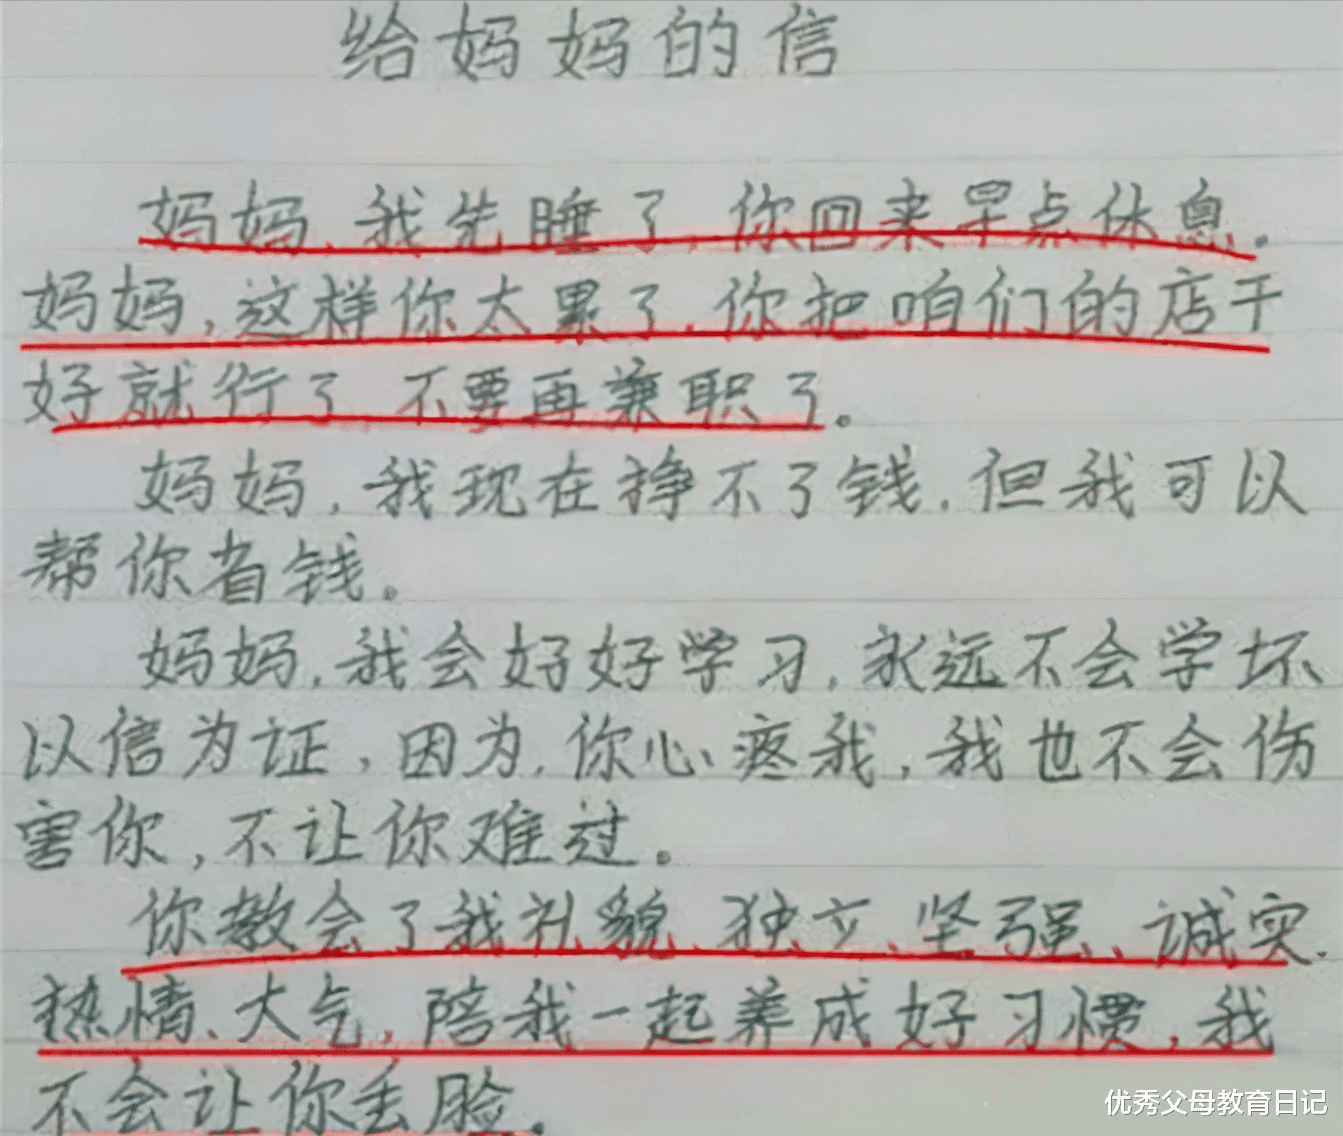 给妈妈的信
妈妈,我先睡了,你回来早点休息。
妈妈,这样你太累了,你把咱们的店干
好就行了,不要再兼职了。
妈妈,我现在挣不了钱,但我可以
帮你省钱。
妈妈,我会好好学习,永远不会学坏
以信为证,因为,你心疼我,我也不会伤
害你,不让你难过。
你教会了我礼貌、独立、坚强、诚实、
热情、大气,陪我一起养成好习惯,我
不会让你丢脸。
优秀父母教育日记